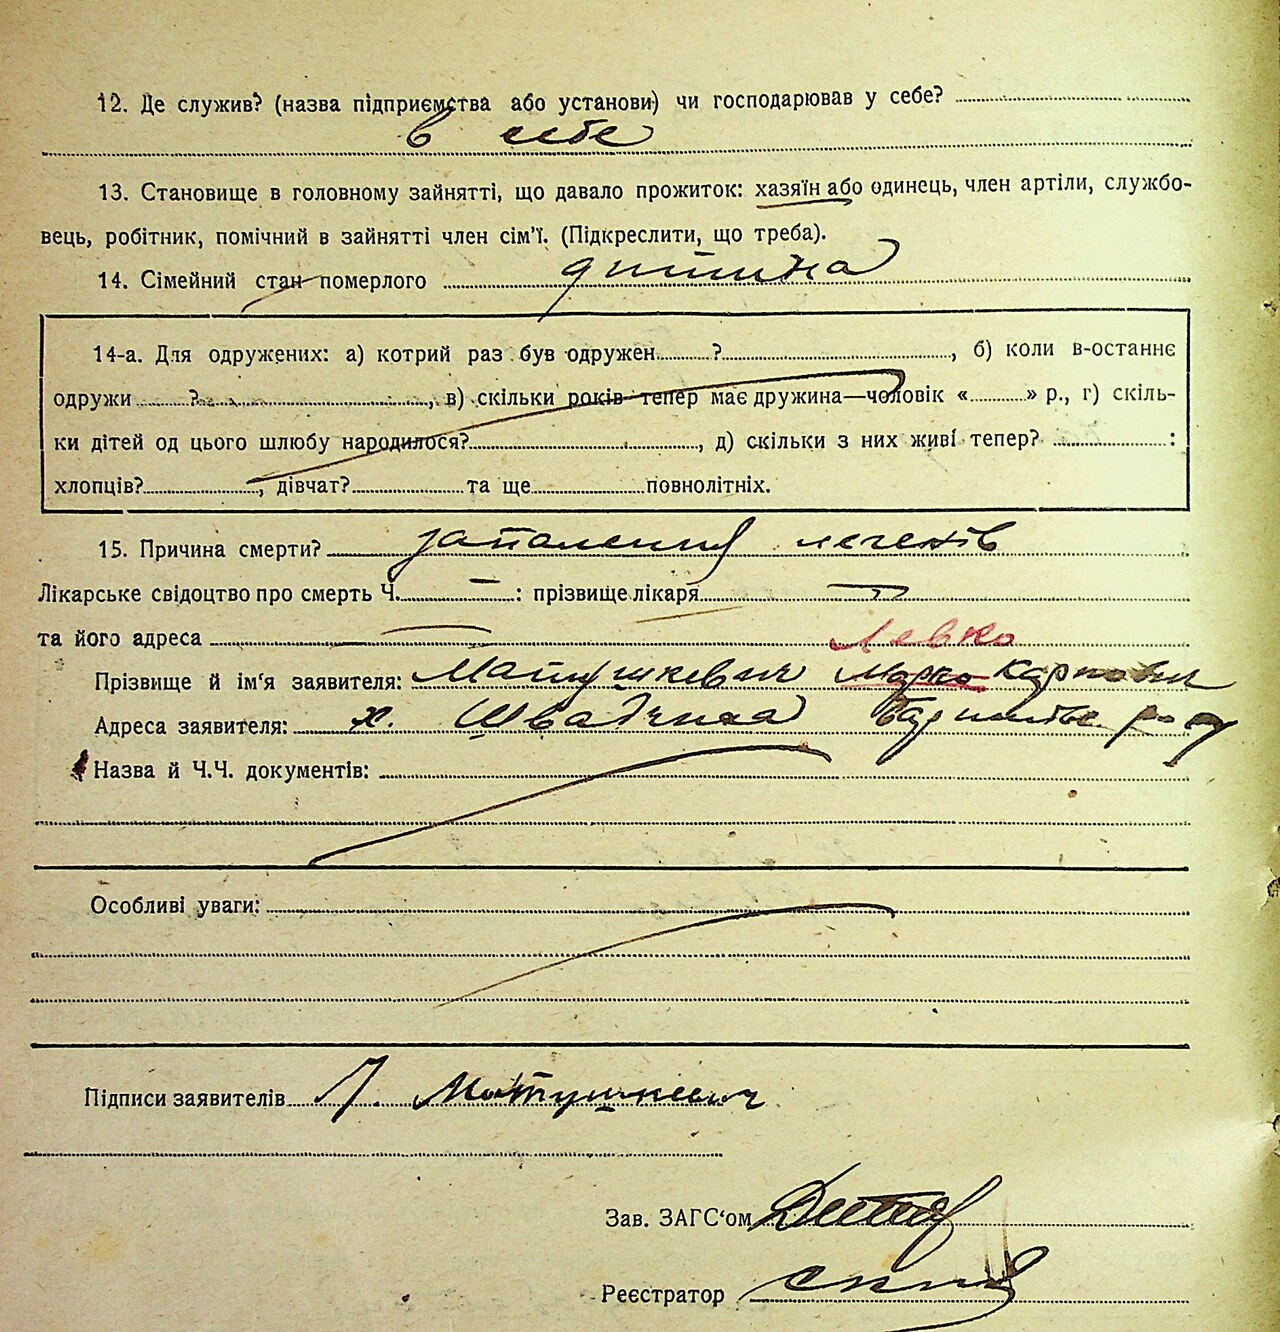 12. Де служив? (назва підприємства або установи) чи господарював у себе?
в себе
13. Становище в головному зайнятті, що давало прожиток: хазяїн або одинець, член артіли, службо-
вець, робітник, помічний в зайнятті член сім'ї. (Підкреслити, що треба).
14. Сімейний стан померлого дитина
14-а. Для одружених: а) котрий раз був одружен ? , б) коли в-останнє
одружи ? , в) скільки років тепер має дружина—чоловік « » р., г) скіль-
ки дітей од цього шлюбу народилося? , д) скільки з них живі тепер? :
хлопців? , дівчат? та ще повнолітніх.
15. Причина смерти? запалення легенів
Лікарське свідоцтво про смерть Ч. — : прізвище лікаря —
та його адреса — Левко
Прізвище й ім'я заявителя: Матушкевич Марко Карпович
Адреса заявителя: х.
Назва й Ч.Ч. документів:
Особливі уваги:
Підписи заявителів Л. Матушкевич
Зав. ЗАГС'ом
Реєстратор